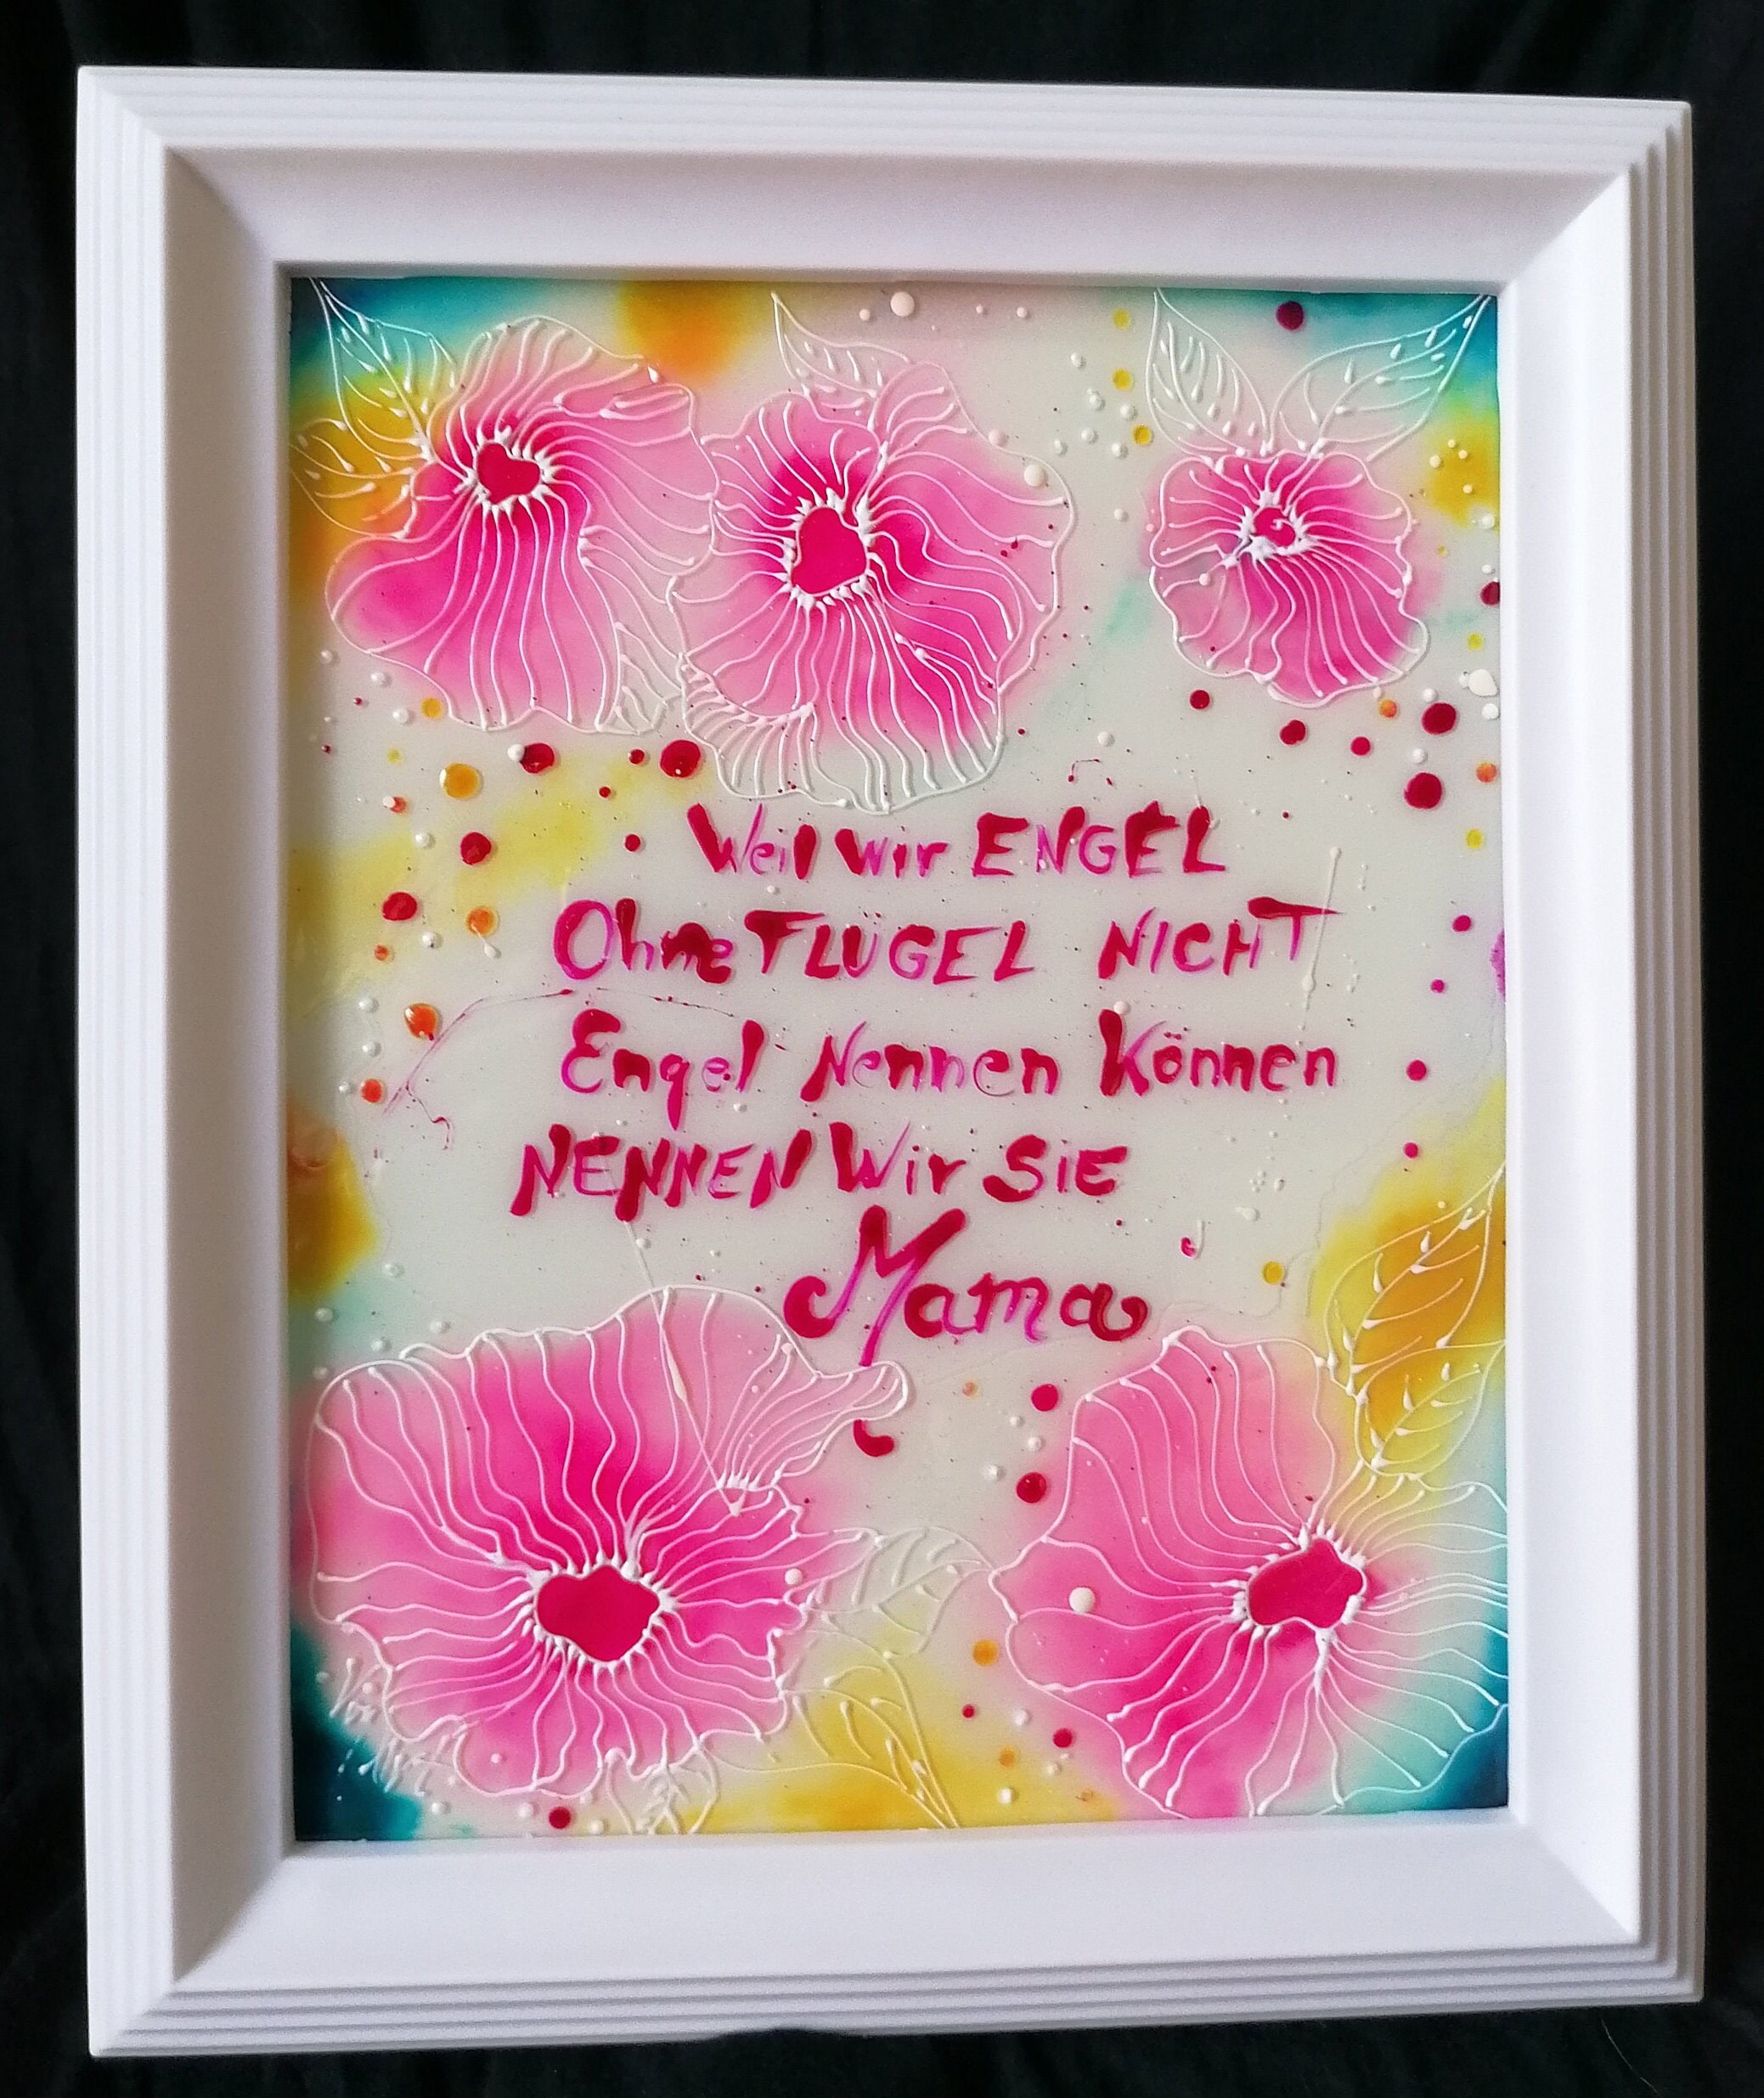 Weil wir ENGEL
Ohne FLÜGEL NICHT
Engel Nennen Können
NENNEN Wir SiE
Mama